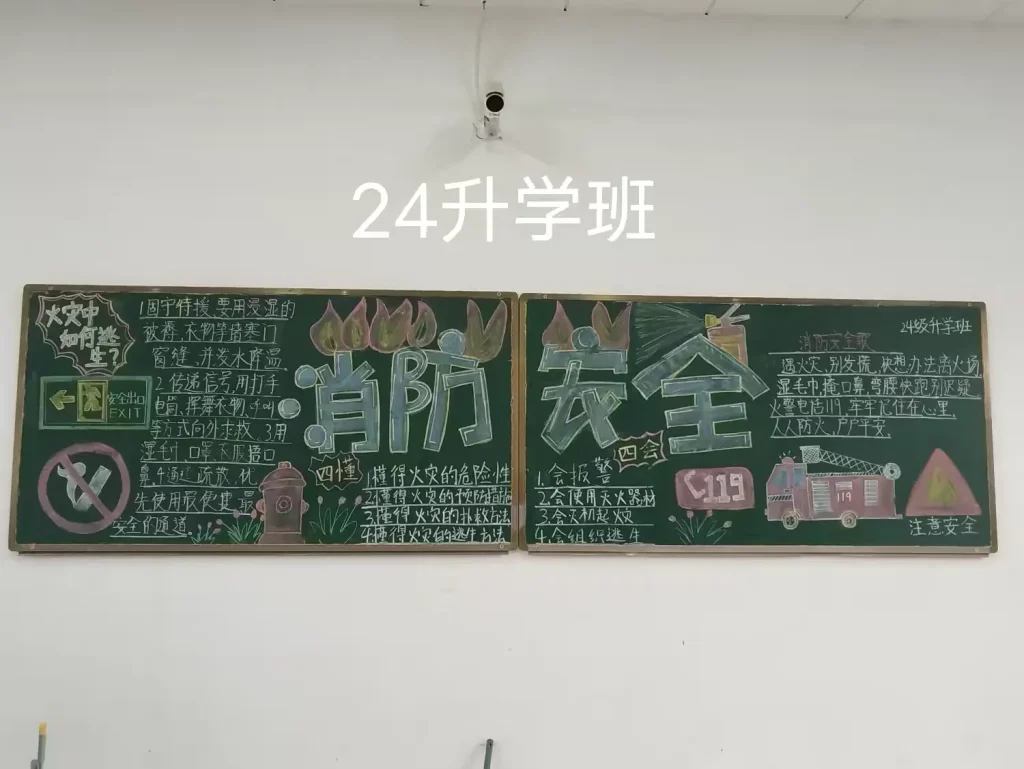 24升学班
火灾中
如何逃
生?
1.固守待援,要用浸湿的
被褥、衣物等堵塞门
窗缝,并泼水降温
2.传递信号,用打手
电筒、挥舞衣物、
等方式向外求救、3.用
湿毛巾、口罩
鼻4.通过疏散,优
先使用最便捷、最
安全的通道
安全出口
EXIT
消防
四懂
1.懂得火灾的危险性
2.懂得火灾的预防措施
3.懂得火灾的扑救方法
4.懂得火灾的逃生方法
安全
四会
1.会报警
2.会使用灭火器材
3.会灭初起火
4.会组织逃生
119
24级升学班
消防安全歌
遇火灾,别发慌,快想办法离火场,
湿毛巾,捂口鼻,弯腰快跑别迟疑
火警电话119,牢牢记住在心里,
人人防火,户户平安.
119
注意安全